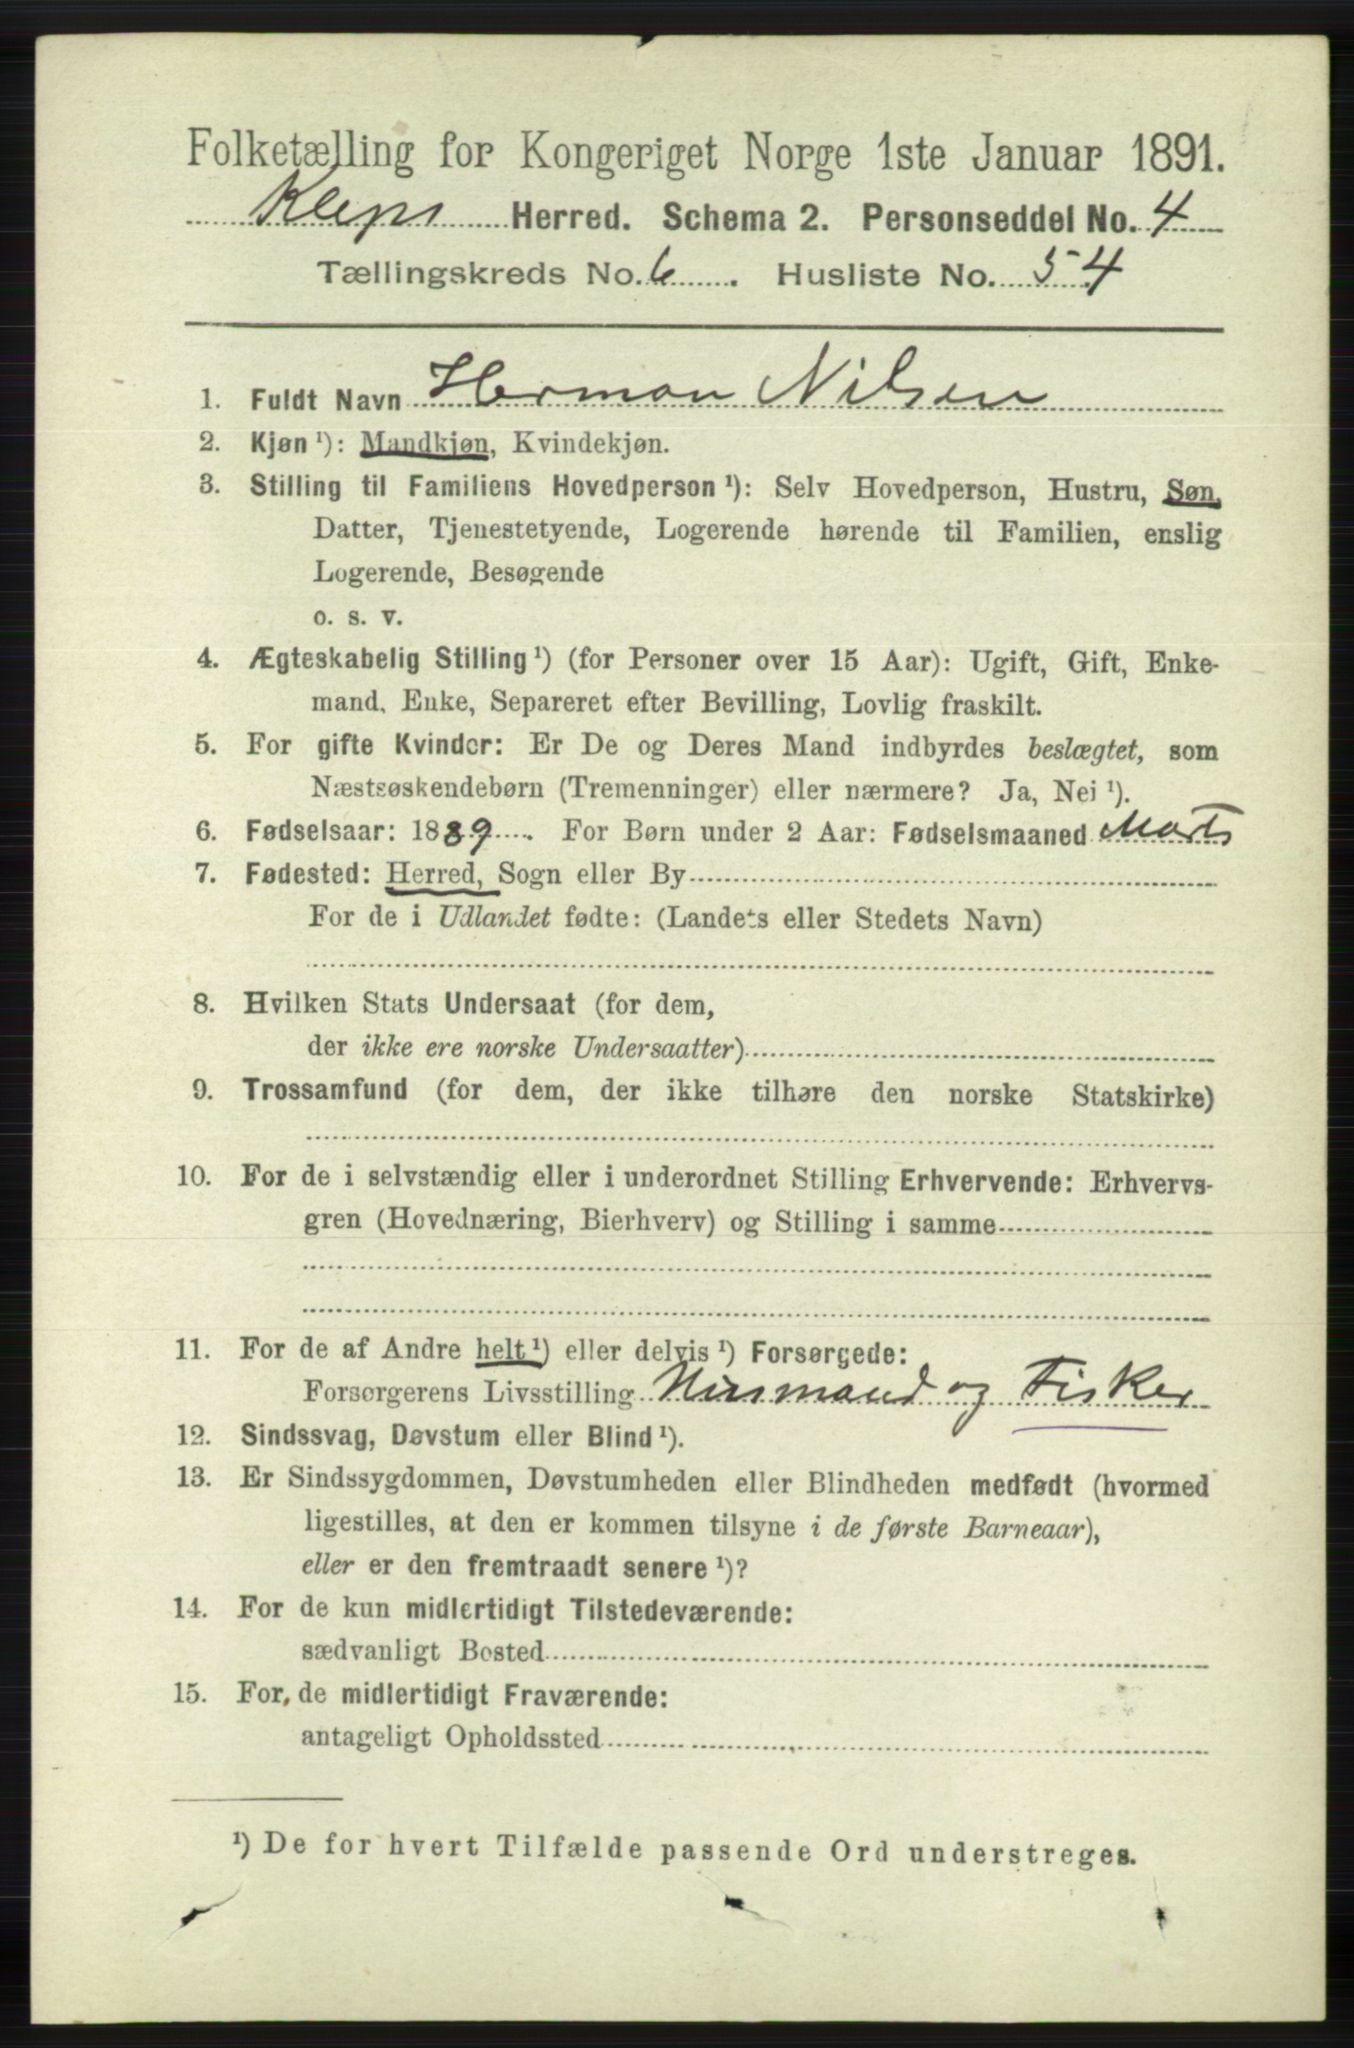 Folketælling for Kongeriget Norge 1ste Januar 1891.
Klepp Herred. Schema 2. Personseddel No. 4
Tællingskreds No. 6. Husliste No. 54
1. Fuldt Navn Herman Nilsen
2. Kjøn ¹): Mandkjøn, Kvindekjøn.
3. Stilling til Familiens Hovedperson ¹): Selv Hovedperson, Hustru, Søn,
Datter, Tjenestetyende, Logerende hørende til Familien, enslig
Logerende, Besøgende
o. s. v.
4. Ægteskabelig Stilling ¹) (for Personer over 15 Aar): Ugift, Gift, Enke-
mand, Enke, Separeret efter Bevilling, Lovlig fraskilt.
5. For gifte Kvinder: Er De og Deres Mand indbyrdes beslægtet, som
Næstsøskendebørn (Tremenninger) eller nærmere? Ja, Nei ¹).
6. Fødselsaar: 1889. For Børn under 2 Aar: Fødselsmaaned Marts
7. Fødested: Herred, Sogn eller By
For de i Udlandet fødte: (Landets eller Stedets Navn)
8. Hvilken Stats Undersaat (for dem,
der ikke ere norske Undersaatter)
9. Trossamfund (for dem, der ikke tilhøre den norske Statskirke)
10. For de i selvstændig eller i underordnet Stilling Erhvervende: Erhvervs-
gren (Hovednæring, Bierhverv) og Stilling i samme
11. For de af Andre helt ¹) eller delvis ¹) Forsørgede:
Forsørgerens Livsstilling Husmand og Fisker
12. Sindssvag, Døvstum eller Blind ¹).
13. Er Sindssygdommen, Døvstumheden eller Blindheden medfødt (hvormed
ligestilles, at den er kommen tilsyne i de første Barneaar),
eller er den fremtraadt senere ¹)?
14. For de kun midlertidigt Tilstedeværende:
sædvanligt Bosted
15. For de midlertidigt Fraværende:
antageligt Opholdssted
¹) De for hvert Tilfælde passende Ord understreges.